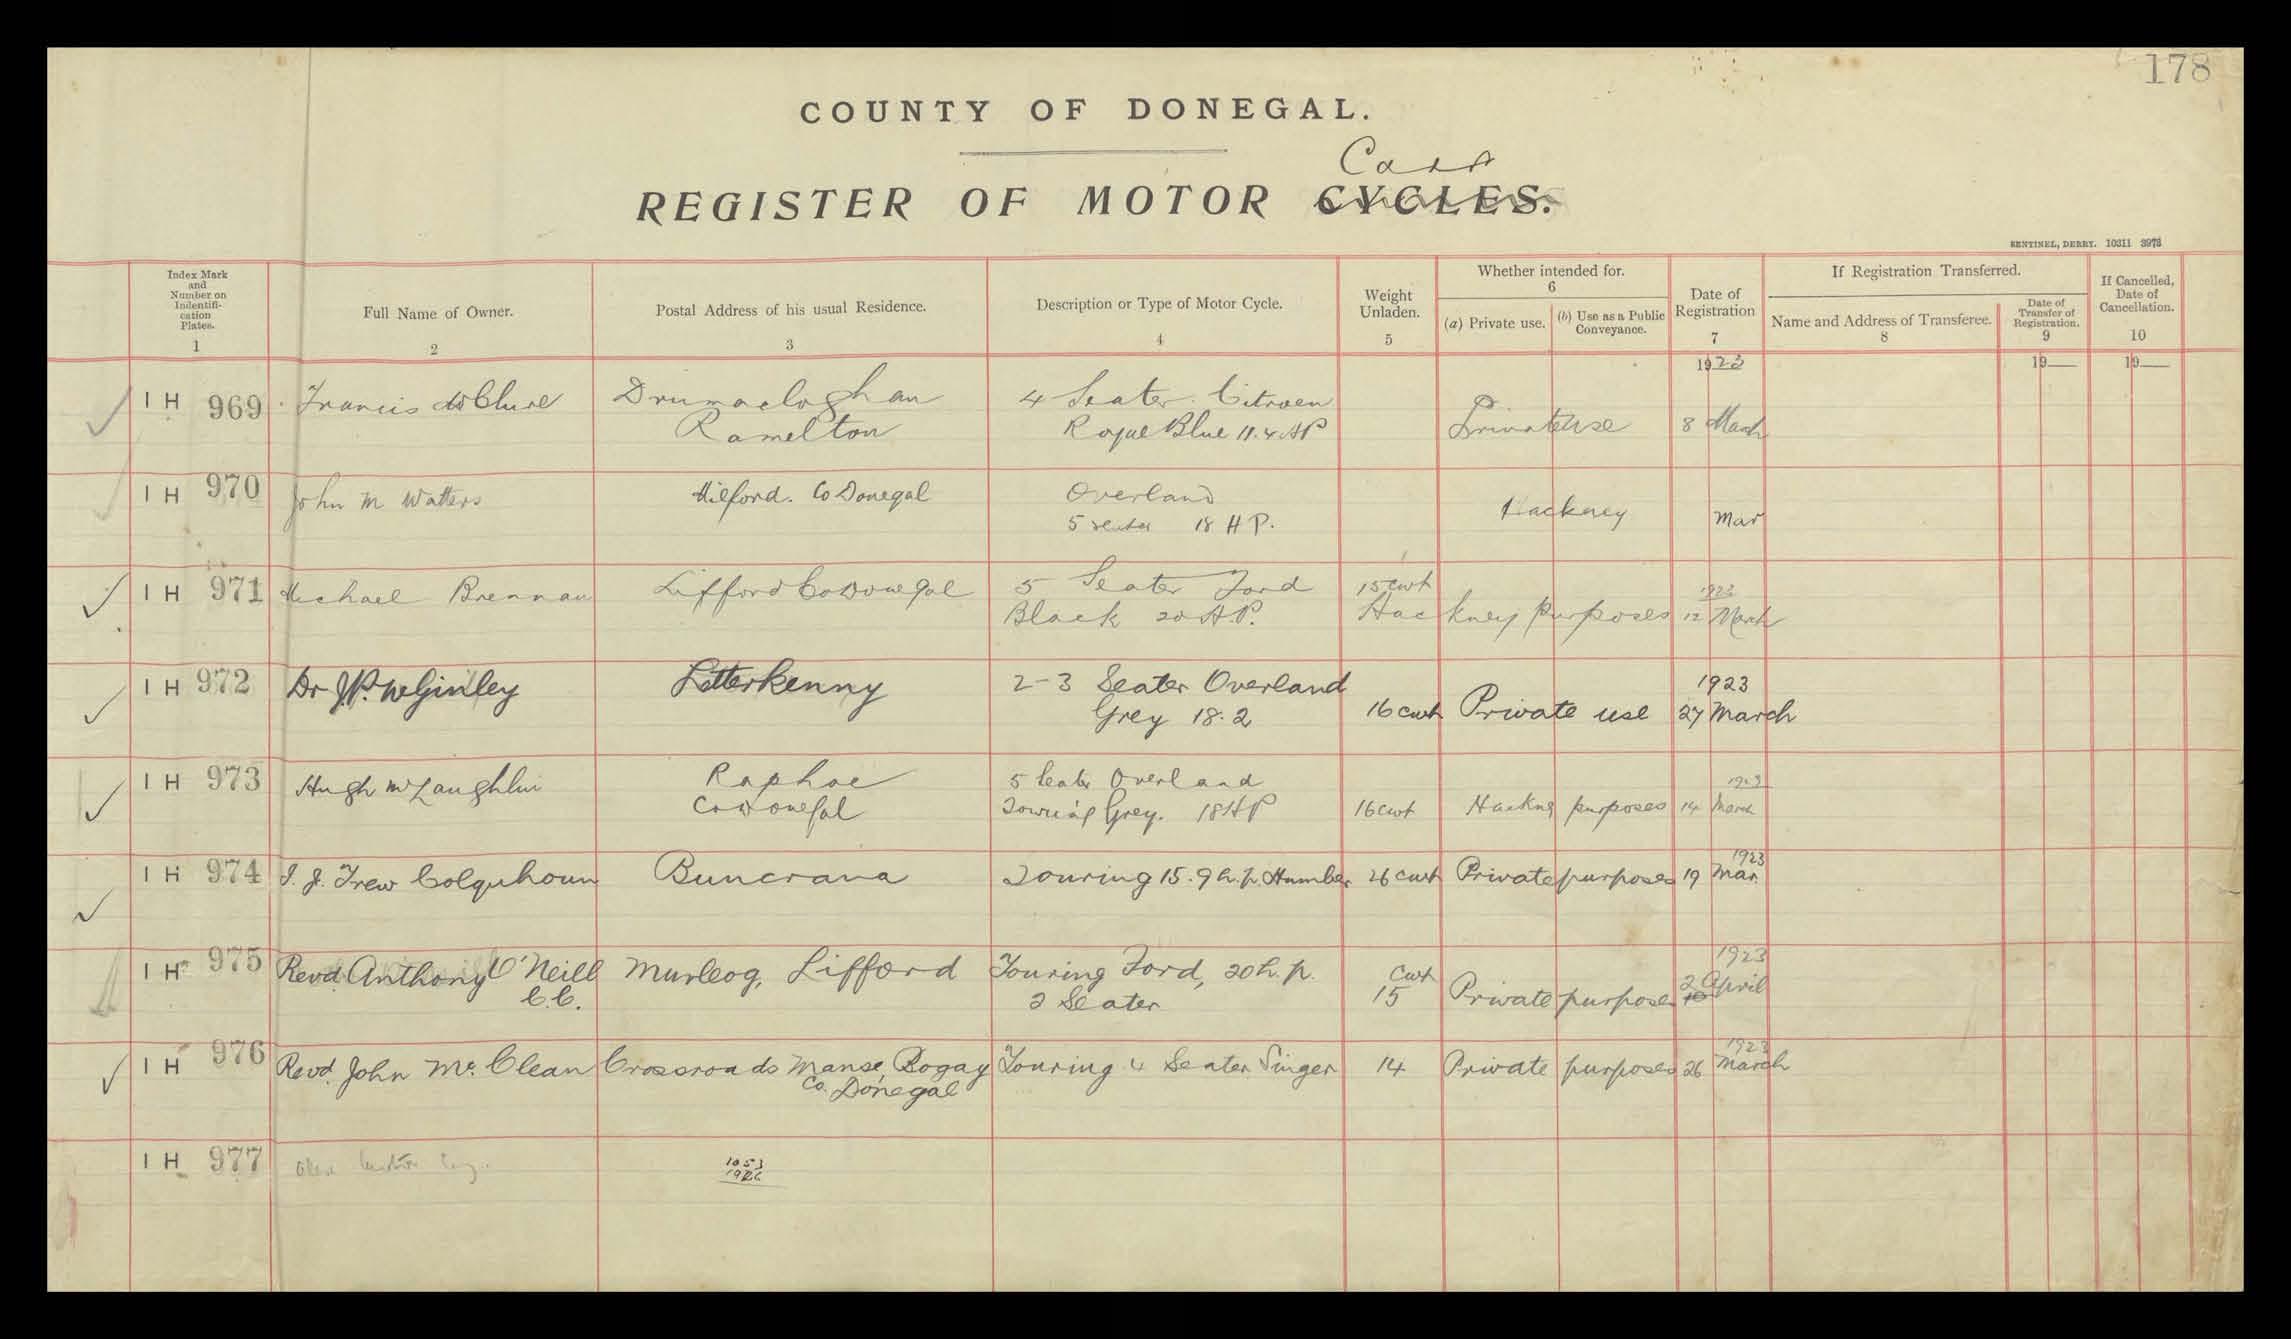 178
COUNTY OF DONEGAL.
Cars
REGISTER OF MOTOR CYCLES.
SENTINEL, DERRY. 10311 3973
Index Mark and Number on Indentifi-cation Plates. 1
Full Name of Owner. 2
Postal Address of his usual Residence. 3
Description or Type of Motor Cycle. 4
Weight Unladen. 5
Whether intended for. 6
(a) Private use.
(b) Use as a Public Conveyance.
Date of Registration 7
If Registration Transferred.
Name and Address of Transferee. 8
Date of Transfer of Registration. 9
If Cancelled, Date of Cancellation. 10
1923 19 19
IH 969 Francis McClure Drumacloghan 4 Seater Citroen
Ramelton Royal Blue 11.4 HP Private use 8 March
IH 970 John M Watters Milford. Co Donegal Overland
5 seater 18 HP. Hackney Mar
IH 971 Michael Brennan Lifford Co Donegal 5 Seater Ford 15 cwt 1923
Black 20 H.P. Hackney Purposes 12 March
IH 972 Dr J.P. McGinley Letterkenny 2-3 Seater Overland 1923
Grey 18.2 16 cwt Private use 27 March
IH 973 Hugh McLaughlin Raphoe 5 Seater Overland 1923
Co Donegal Touring Grey. 18 HP 16 cwt Hackney purposes 14 March
IH 974 Trew Colquhoun Buncrana Touring 15.9 h.p. Humber 26 cwt Private purposes 19 Mar. 1923
IH 975 Revd. Anthony O'Neill Murleog, Lifford Touring Ford, 20 h.p. cwt 1923
C.C. 2 Seater 15 Private purposes 2 April
IH 976 Revd. John Mc. Clean Crossroads Manse, Bogay Touring 4 Seater Singer 14 Private purposes 26 March 1923
Co. Donegal
IH 977 1053
1926